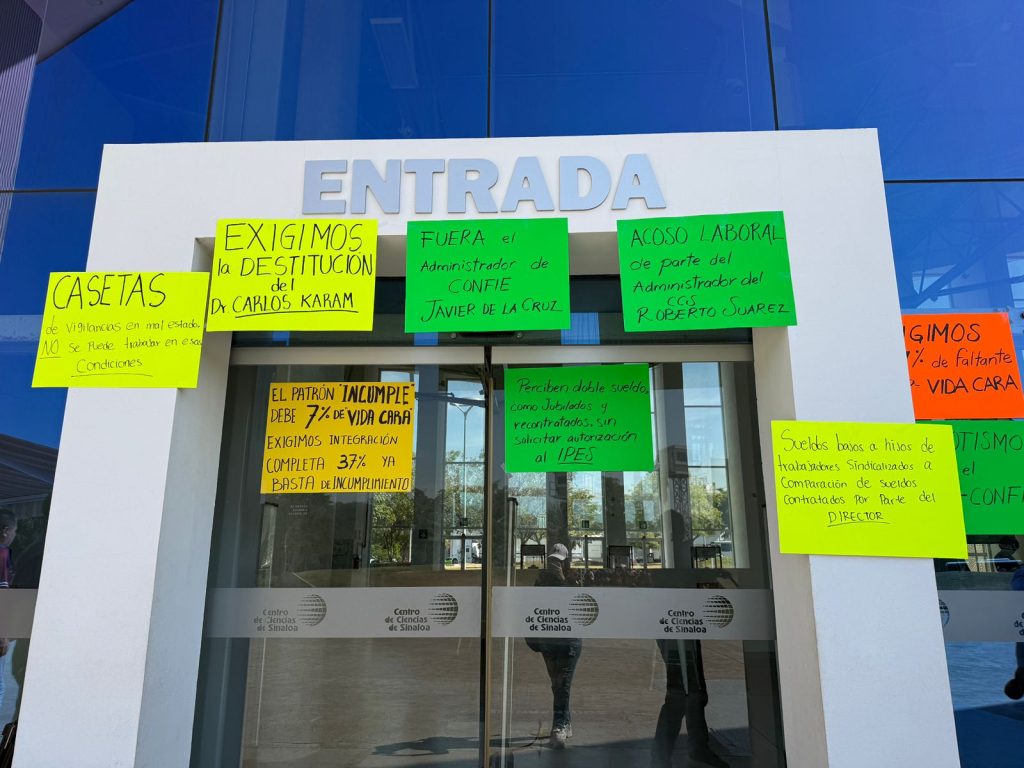 ENTRADA
CASETAS
de Vigilancias en mal estado.
NO se Puede trabajar en esas
Condiciones
EXIGIMOS
la DESTITUCIÓN
del
Dr. CARLOS KARAM
FUERA el
Administrador de
CONFIE
JAVIER DE LA CRUZ
ACOSO LABORAL
de parte del
Administrador del
CCS
ROBERTO SUAREZ
IGIMOS
% de faltante
VIDA CARA
EL PATRÓN "INCUMPLE"
DEBE 7% DE "VIDA CARA"
EXIGIMOS INTEGRACIÓN
COMPLETA 37% YA
BASTA DE INCUMPLIMIENTO
Perciben doble sueldo,
como Jubilados y
recontratados, sin
solicitar autorización
al IPES
Sueldos bajos a hijos de
trabajadores Sindicalizados a
Comparación de sueldos
Contratados por Parte del
DIRECTOR
OTISMO
el
-CONFI
Centro
de Ciencias
de Sinaloa
Centro
de Ciencias
de Sinaloa
Centro
de Ciencias
de Sinaloa
Centro
de Ciencias
de Sinaloa